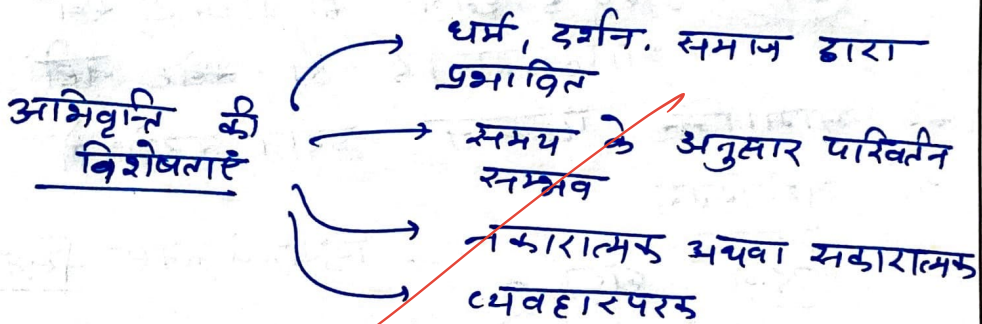 अभिवृत्ति की
विशेषताएं
धर्म, दर्शन. समाज द्वारा
प्रभावित
समय के अनुसार परिवर्तन
सम्भव
नकारात्मक अथवा सकारात्मक
व्यवहारपरक